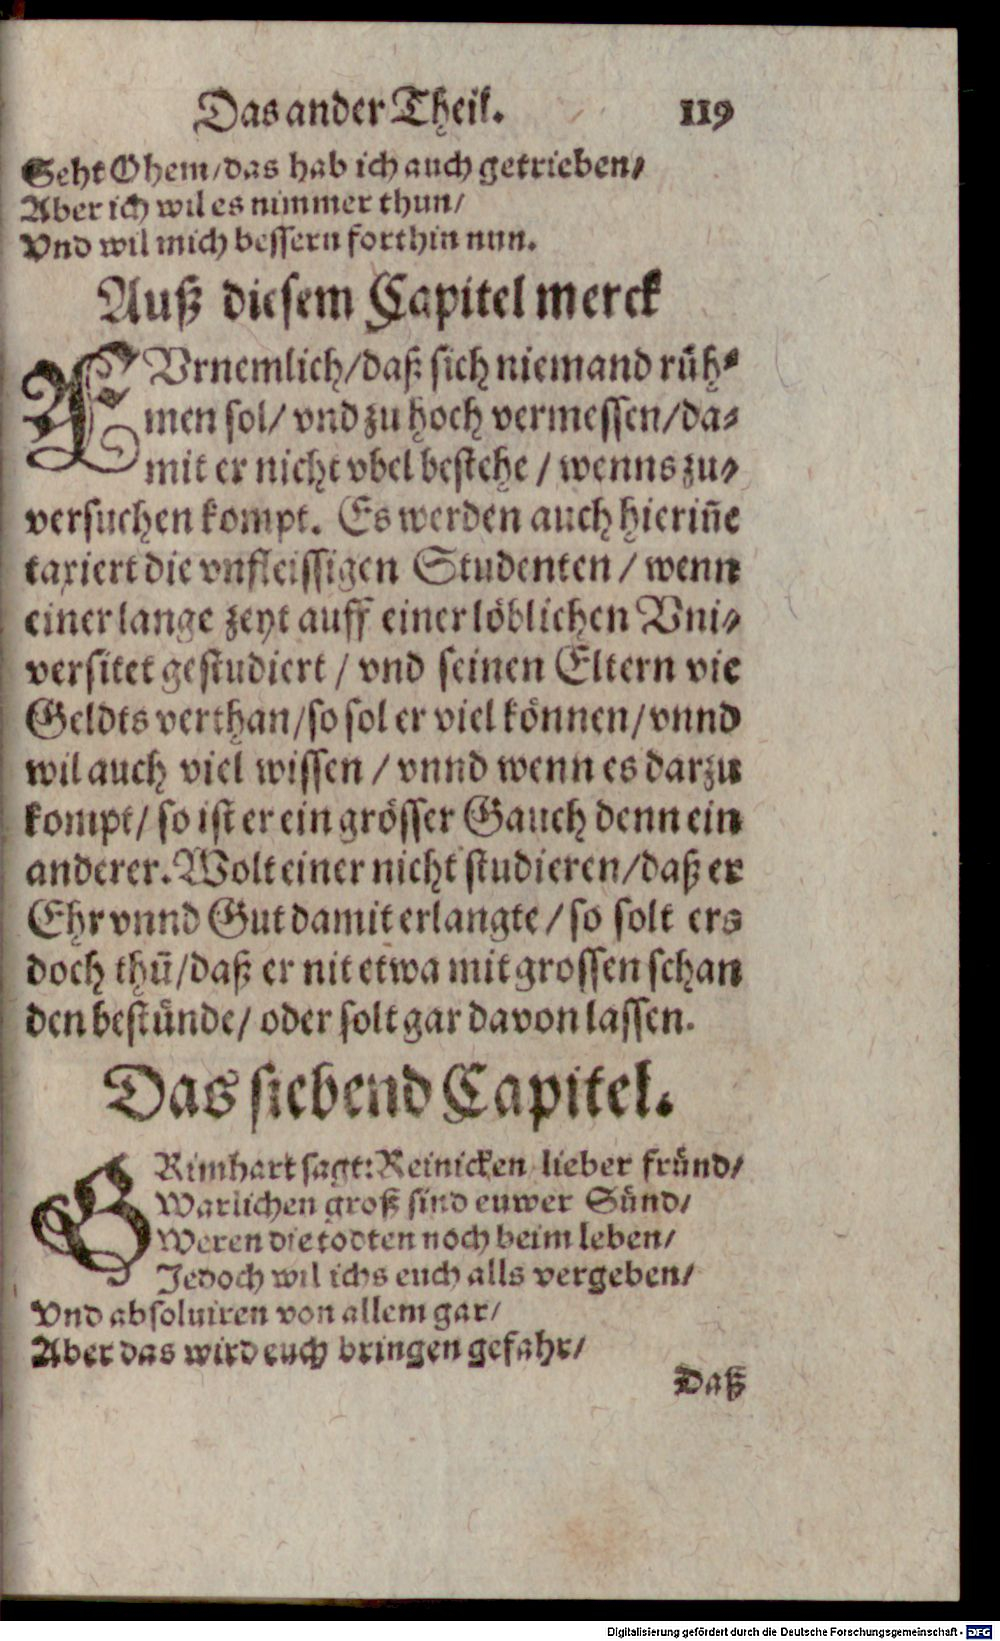 Das ander Theil. 119
Seht Ohem/das hab ich auch getrieben/
Aber ich wil es nimmer thun/
Vnd wil mich bessern forthin nun.
Auß diesem Capitel merck
FVrnemlich/daß sich niemand rüh⸗
men sol/ vnd zu hoch vermessen/da⸗
mit er nicht vbel bestehe / wenns zu⸗
versuchen kompt. Es werden auch hieriñe
taxiert die vnfleissigen Studenten / wenn
einer lange zeyt auff einer löblichen Vni⸗
versitet gestudiert / vnd seinen Eltern vie
Geldts verthan/so sol er viel können/vnnd
wil auch viel wissen / vnnd wenn es darzu
kompt/ so ist er ein grösser Gauch denn ein
anderer. Wolt einer nicht studieren/daß er
Ehr vnnd Gut damit erlangte / so solt ers
doch thū/daß er nit etwa mit grossen schan
den bestünde/ oder solt gar davon lassen.
Das siebend Capitel.
GRimhart sagt: Reinicken lieber fründ/
Warlichen groß sind euwer Sünd/
Weren die todten noch beim leben/
Jedoch wil ichs euch alls vergeben/
Vnd absoluiren von allem gar/
Aber das wird euch bringen gefahr/
Daß
Digitalisierung gefördert durch die Deutsche Forschungsgemeinschaft - DFG